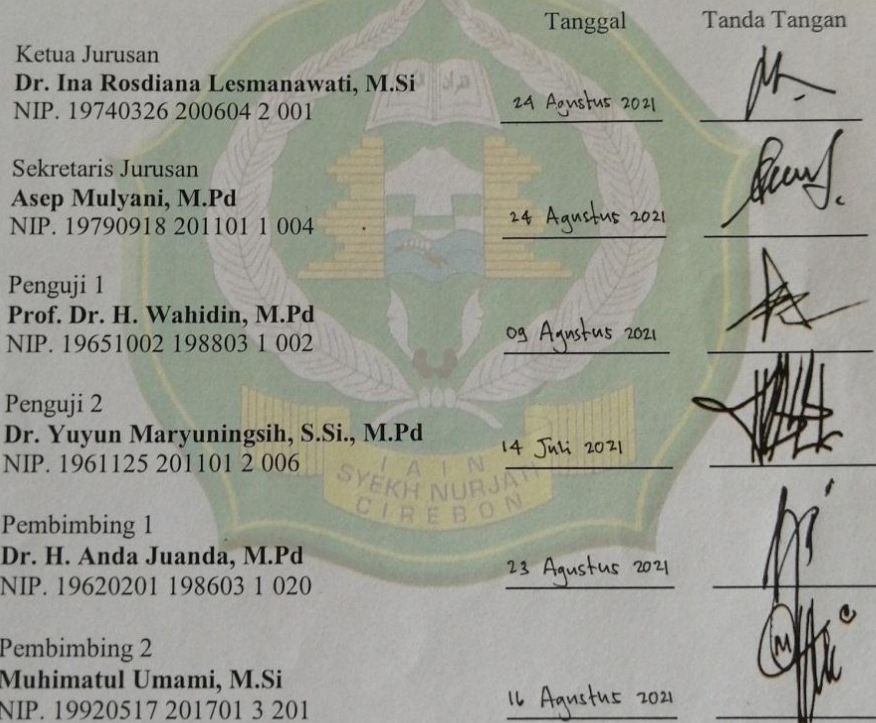 Tanggal Tanda Tangan
Ketua Jurusan
Dr. Ina Rosdiana Lesmanawati, M.Si
NIP. 19740326 200604 2 001 24 Agustus 2021
Sekretaris Jurusan
Asep Mulyani, M.Pd
NIP. 19790918 201101 1 004 24 Agustus 2021
Penguji 1
Prof. Dr. H. Wahidin, M.Pd
NIP. 19651002 198803 1 002 09 Agustus 2021
Penguji 2
Dr. Yuyun Maryuningsih, S.Si., M.Pd
NIP. 1961125 201101 2 006 14 Juli 2021
IAIN
SYEKH NURJATI
CIREBON
Pembimbing 1
Dr. H. Anda Juanda, M.Pd
NIP. 19620201 198603 1 020 23 Agustus 2021
Pembimbing 2
Muhimatul Umami, M.Si
NIP. 19920517 201701 3 201 16 Agustus 2021